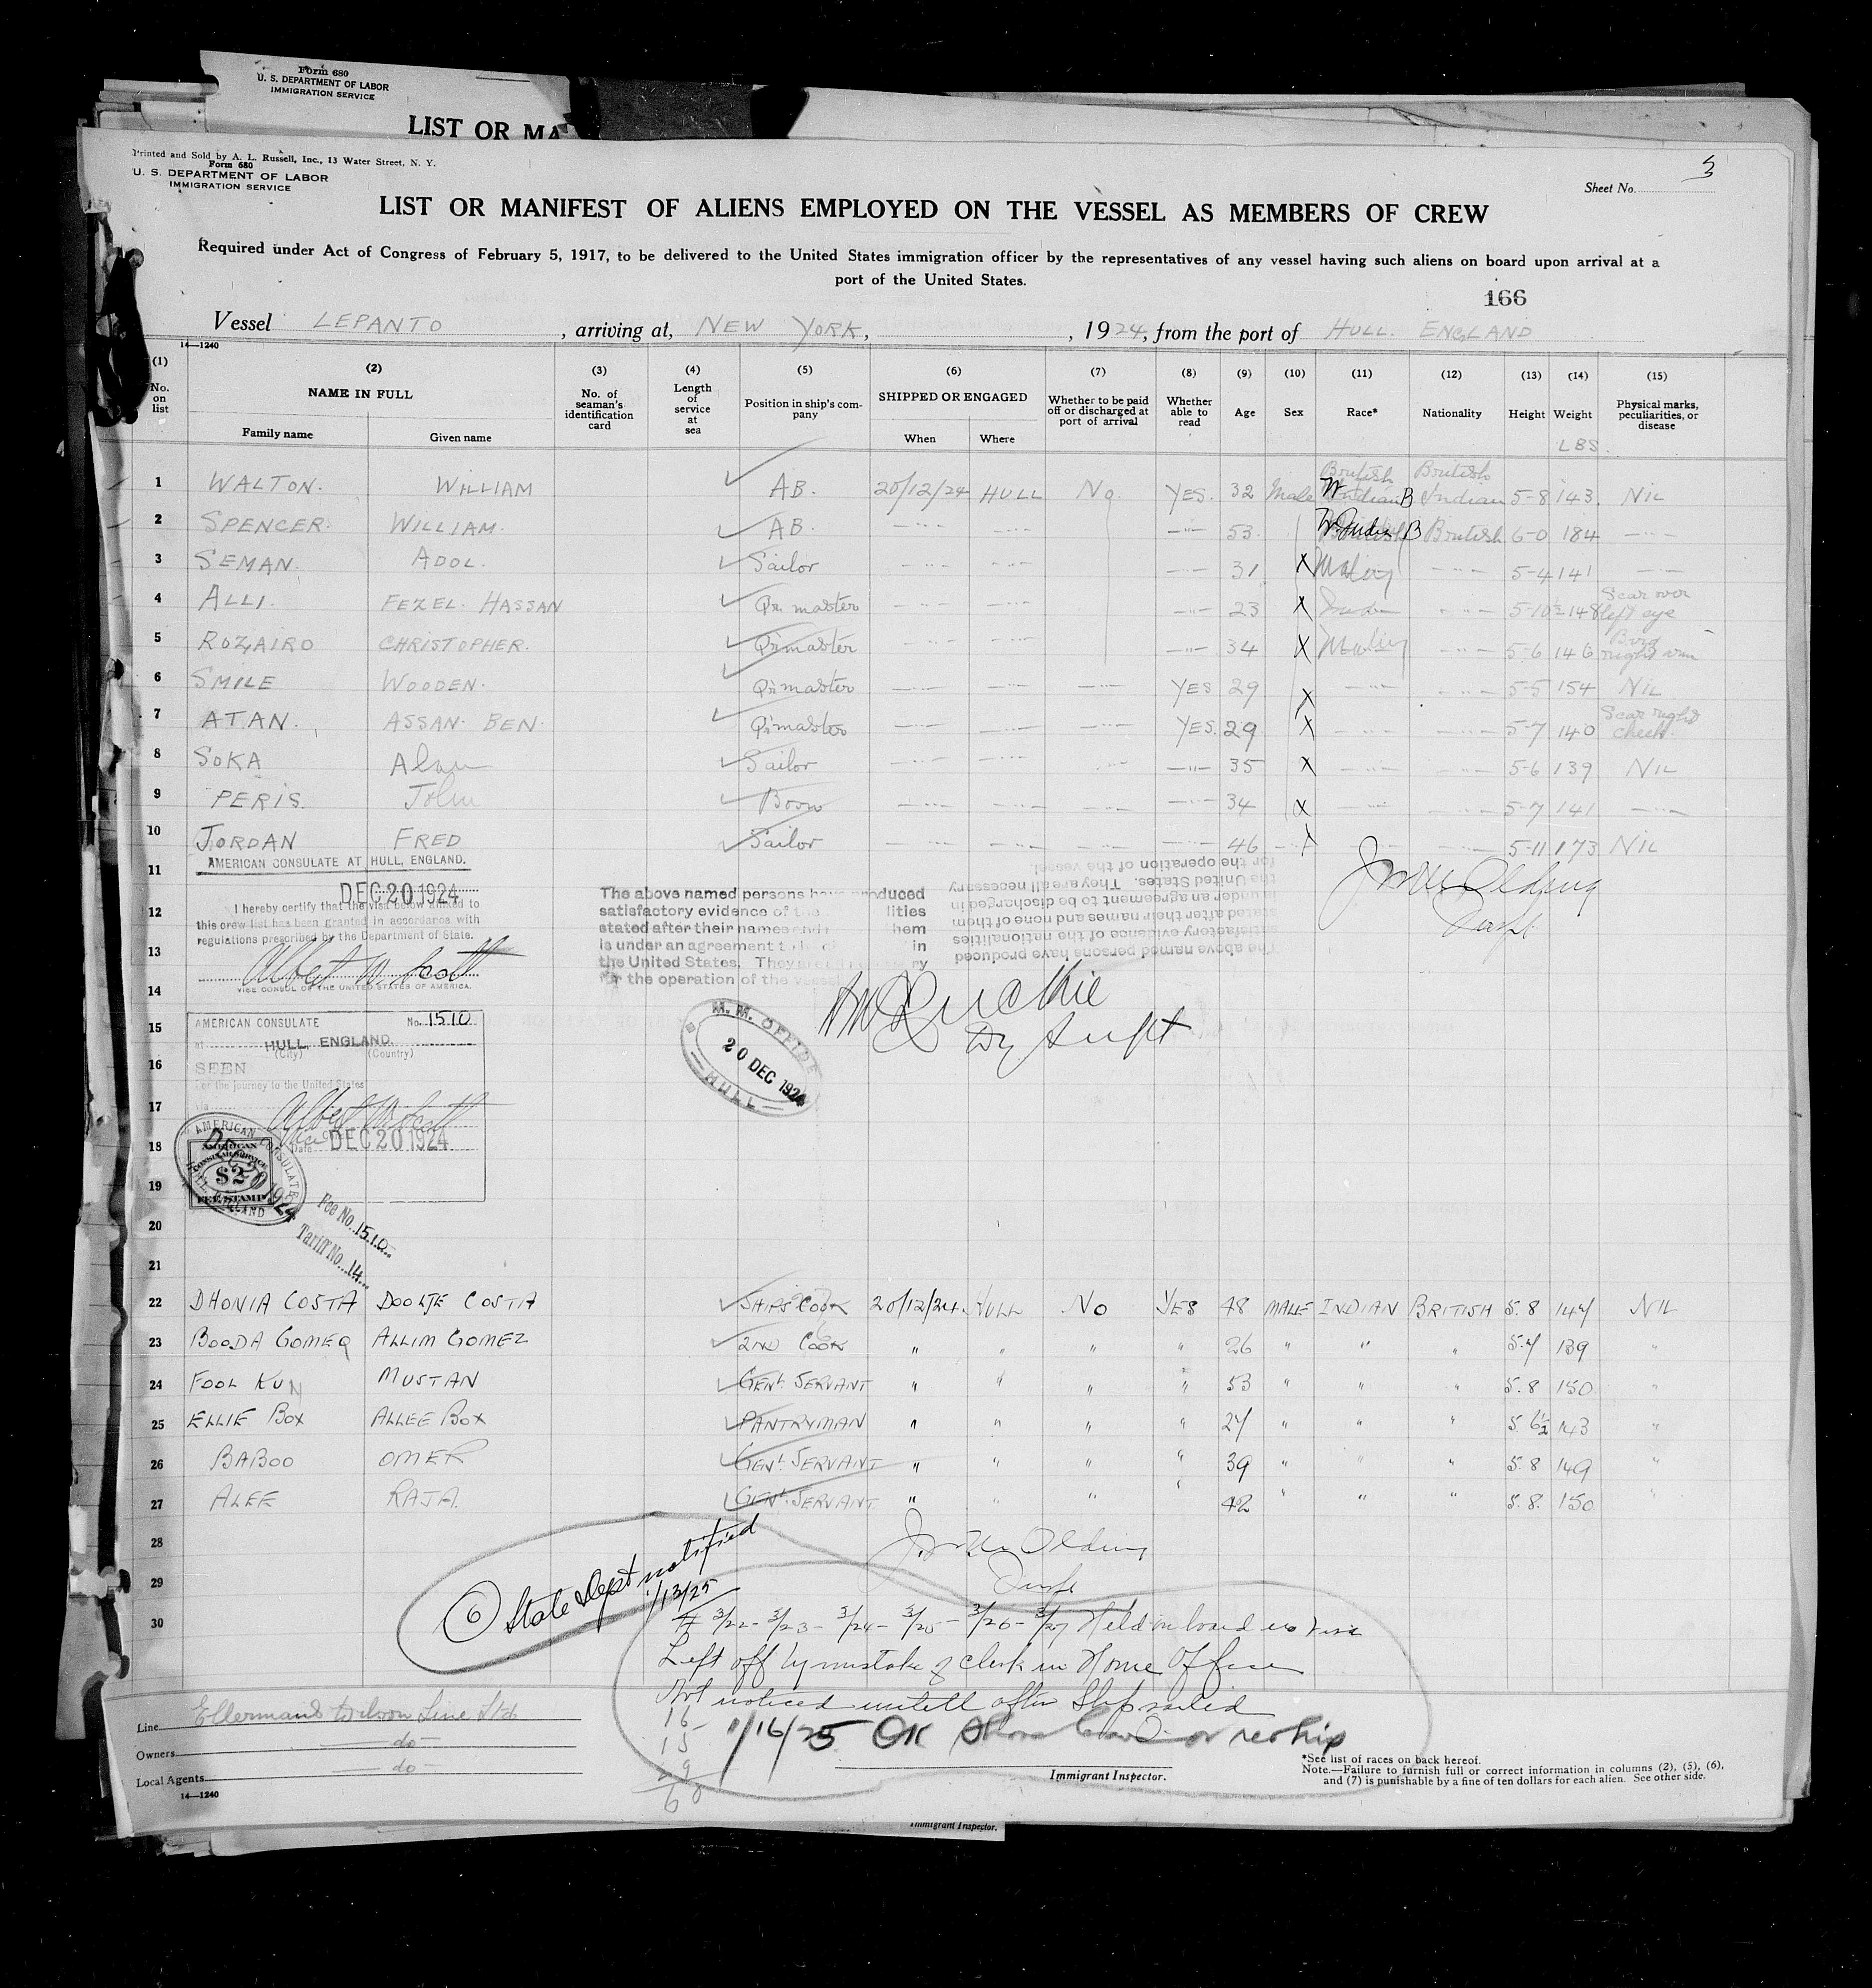 Form 680
U. S. DEPARTMENT OF LABOR
IMMIGRATION SERVICE
LIST OR MA
Printed and Sold by A. L. Russell, Inc., 13 Water Street, N. Y.
Form 680
U. S. DEPARTMENT OF LABOR
IMMIGRATION SERVICE
Sheet No. 3
LIST OR MANIFEST OF ALIENS EMPLOYED ON THE VESSEL AS MEMBERS OF CREW
Required under Act of Congress of February 5, 1917, to be delivered to the United States immigration officer by the representatives of any vessel having such aliens on board upon arrival at a
port of the United States.
166
Vessel LEPANTO, arriving at, NEW YORK, , 1924, from the port of HULL. ENGLAND
14—1240
(1) No. on list (2) NAME IN FULL Family name Given name (3) No. of seaman's identification card (4) Length of service at sea (5) Position in ship's company (6) SHIPPED OR ENGAGED When Where (7) Whether to be paid off or discharged at port of arrival (8) Whether able to read (9) Age (10) Sex (11) Race* (12) Nationality (13) Height (14) Weight LBS. (15) Physical marks, peculiarities, or disease
1 WALTON. WILLIAM AB. 20/12/24 HULL No YES. 32 Male British W Indian B British Indian 5-8 143. NIL
2 SPENCER. WILLIAM. AB. —"— —"— —"— 53. W Indies B British 6-0 184 —"—
3 SEMAN. ADOL. Sailor —"— —"— —"— 31 X Malay —"— 5-4 141 —"—
4 ALLI. FEZEL. HASSAN Qr. master —"— —"— —"— 23 X —"— 5-10½ 148 Scar over left eye
5 ROZAIRO CHRISTOPHER. Qr. master —"— —"— —"— 34 X Malay —"— 5-6 146 right arm
6 SMILE WOODEN. Qr. master —"— —"— —"— YES 29 X —"— —"— 5-5 154 NIL
7 ATAN. ASSAN. BEN. Qr. master —"— —"— —"— YES. 29 X —"— —"— 5-7 140 Scar right cheek.
8 SOKA Sailor —"— —"— —"— —"— 35 X —"— —"— 5-6 139 NIL
9 PERIS. John Bosn —"— —"— —"— —"— 34 X —"— —"— 5-7 141 —"—
10 JORDAN FRED Sailor —"— —"— —"— —"— 46 —"— X —"— —"— 5-11 173 NIL
11
12
13
14
15
16
17
18
19
20
21
AMERICAN CONSULATE AT HULL, ENGLAND.
DEC 20 1924
I hereby certify that the visa below affixed to
this crew list has been granted in accordance with
regulations prescribed by the Department of State.
Albert W. Scott
VICE CONSUL OF THE UNITED STATES OF AMERICA.
The above named persons have produced
satisfactory evidence of the lities
stated after their names and hem
is under an agreement to in
the United States. They ry
for the operation of the vessel
The above named persons have produced
satisfactory evidence of the nationalities
stated after their names and none of them
is under an agreement to be discharged in
the United States. They are all necessary
for the operation of the vessel.
Ritchie
Dy Supt
M. M. OFFICE
20 DEC 1924
HULL
AMERICAN CONSULATE No. 1510
at HULL, ENGLAND.
(City) (Country)
SEEN
For the journey to the United States
via
Albert W Scott
Date DEC 20 1924
AMERICAN CONSULATE
HULL ENGLAND
DEC 20 1924
AMERICAN
CONSULAR SERVICE
$2
FEE STAMP
Fee No. 1510
Tariff No. 14
22 DHONIA COSTA DOOLJE COSTA SHIPS COOK 20/12/24. HULL NO YES 48 MALE INDIAN BRITISH 5.8 144 NIL
23 BOODA GOMEQ ALLIM GOMEZ 2ND COOK " " " " 26 " " " 5.4 139 "
24 FOOL KUN MUSTAN GENL. SERVANT " " " " 53 " " " 5.8 150 "
25 ELLIE BOX ALLEE BOX PANTRYMAN " " " " 24 " " " 5.6½ 143 "
26 BABOO OMER GENL. SERVANT " " " " 39 " " " 5.8 149 "
27 ALEE RAJA. GENL. SERVANT " " " " 42 " " " 5.8. 150 "
28
29
30
6 State Dept notified
1/13/25
# 3/22 - 3/23 - 3/24 - 3/25 - 3/26 - 3/27 Held on board no visa
Left off by mistake of clerk in Home Office
Not noticed untill after Ship sailed
16
15
29
60
1/16/25 OK or reship
Line Ellermans Wilson Line Ltd
Owners —do—
Local Agents —do—
14—1240
Immigrant Inspector.
*See list of races on back hereof.
Note.—Failure to furnish full or correct information in columns (2), (5), (6),
and (7) is punishable by a fine of ten dollars for each alien. See other side.
Immigrant Inspector.